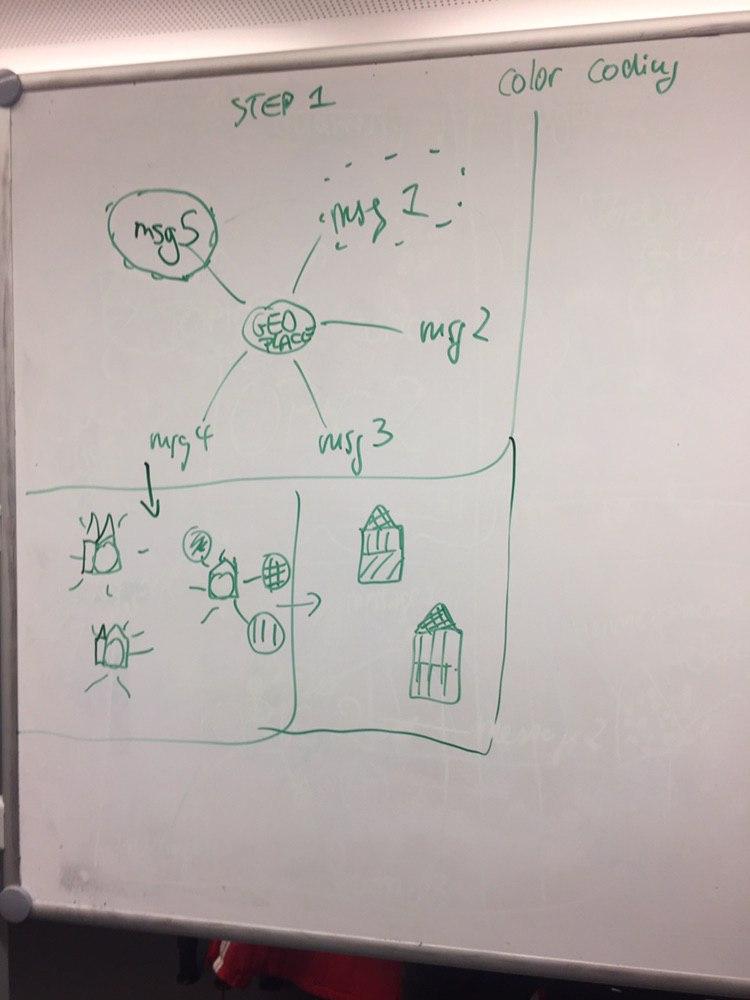 STEP 1
Color Coding
msg5
msg 1
GEO
PLACE
msg2
msg4
msg3